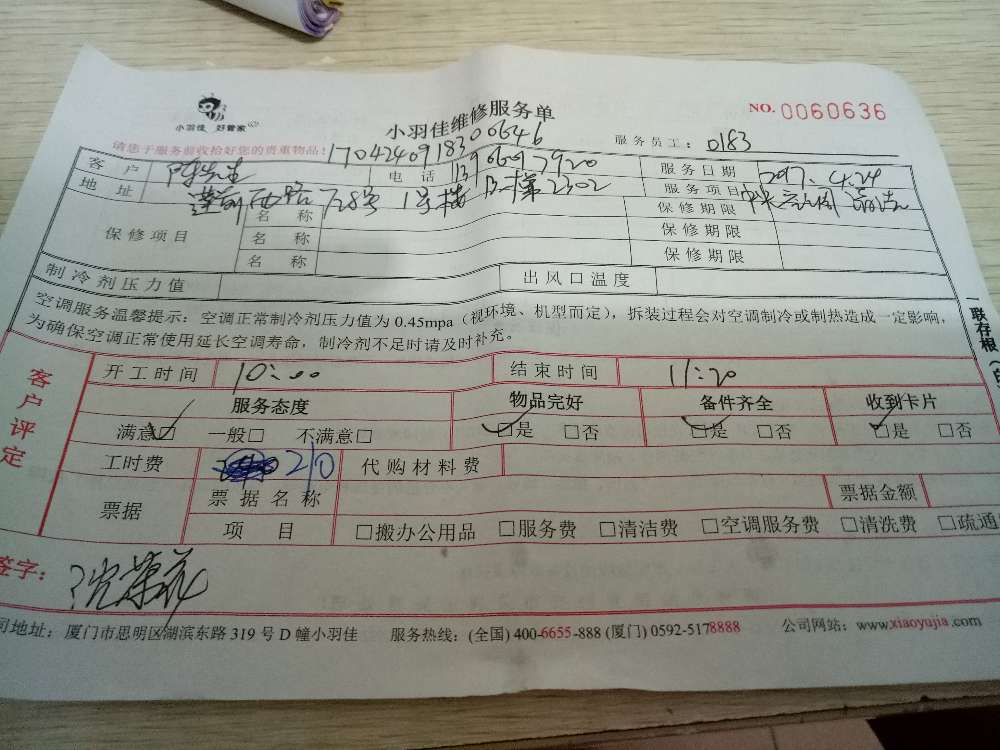 小羽佳 好管家
小羽佳维修服务单
NO. 0060636
请您于服务前收拾好您的贵重物品!
17042409183006646
服务员工: 0183
客户 陈先生 电话 13966097920 服务日期 2017.4.24
地址 莲前西路728号 1号楼 B梯2302 服务项目 中央空调 清洗
保修项目 名称 保修期限
名称 保修期限
名称 保修期限
制冷剂压力值 出风口温度
空调服务温馨提示: 空调正常制冷剂压力值为 0.45mpa (视环境、机型而定), 拆装过程会对空调制冷或制热造成一定影响,
为确保空调正常使用延长空调寿命, 制冷剂不足时请及时补充。
一联存根
客户评定
开工时间 10:00 结束时间 11:20
服务态度 物品完好 备件齐全 收到卡片
满意☑ 一般□ 不满意□ ☑是 □否 ☑是 □否 ☑是 □否
工时费 210 代购材料费
票据 票据名称 票据金额
项目 □搬办公用品 □服务费 □清洁费 □空调服务费 □清洗费 □疏通
签字: 沈荣花
司地址: 厦门市思明区湖滨东路 319 号 D 幢小羽佳 服务热线: (全国) 400-6655-888 (厦门) 0592-5178888 公司网站: www.xiaoyujia.com